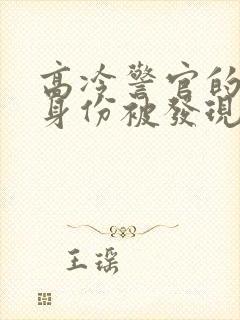 高冷警官的
身份被發現
王琛